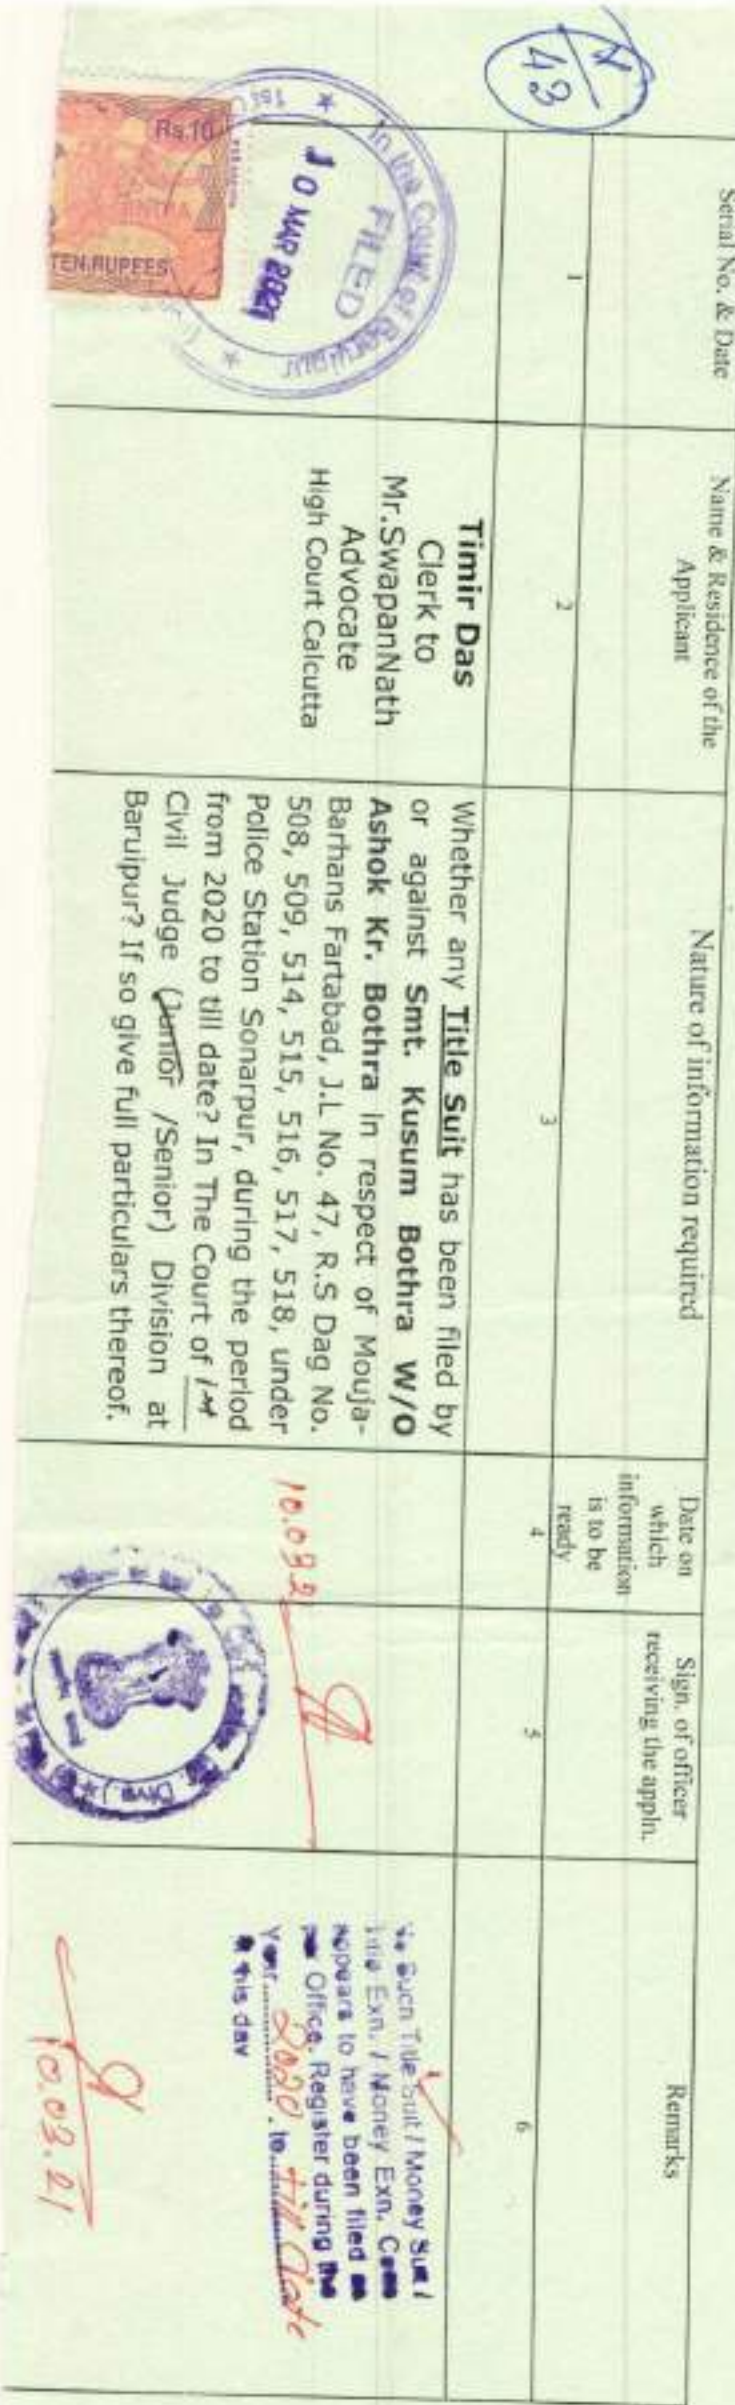 N/43
Serial No. & Date
Name & Residence of the
Applicant
Nature of information required
Date on
which
information
is to be
ready
Sign. of officer
receiving the appln.
Remarks
1
2
3
4
5
6
Rs.10
TEN RUPEES
In the Court of Baruipur
FILED
10 MAR 2021
Timir Das
Clerk to
Mr.SwapanNath
Advocate
High Court Calcutta
Whether any Title Suit has been filed by
or against Smt. Kusum Bothra W/O
Ashok Kr. Bothra in respect of Mouja-
Barhans Fartabad, J.L No. 47, R.S Dag No.
508, 509, 514, 515, 516, 517, 518, under
Police Station Sonarpur, during the period
from 2020 to till date? In The Court of 1st
Civil Judge (Junior /Senior) Division at
Baruipur? If so give full particulars thereof.
10.03.2
Divn.)
No Such Title Suit / Money Suit /
Title Exn. / Money Exn. Case
appears to have been filed as
per Office. Register during the
Year. 2020 . to till date
this day
10.03.21